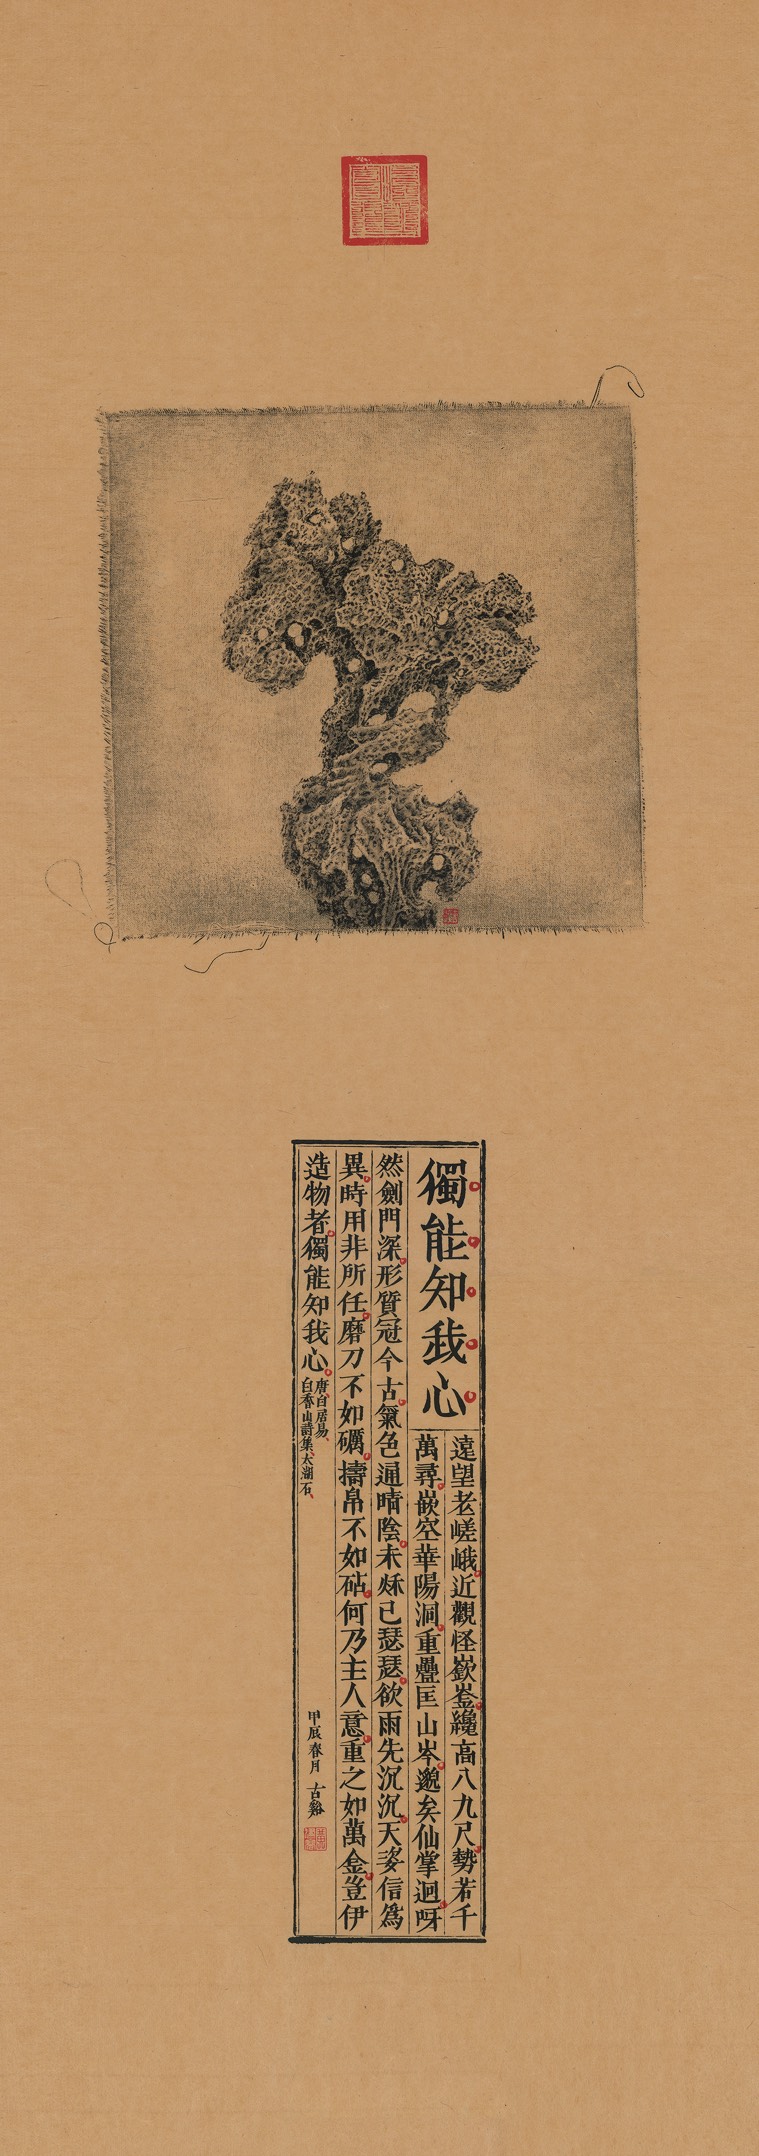 獨能知我心
遠望老嵯峨近觀怪嶔崟纔高八九尺勢若千
萬尋嵌空華陽洞重疊匡山岑邈矣仙掌迥呀
然劍門深形質冠今古氣色通晴陰未秌已瑟瑟欲雨先沉沉天姿信爲
異時用非所任磨刀不如礪擣帛不如砧何乃主人意重之如萬金豈伊
造物者獨能知我心
唐白居易、
白香山詩集、太湖石、
甲辰春月 古谿